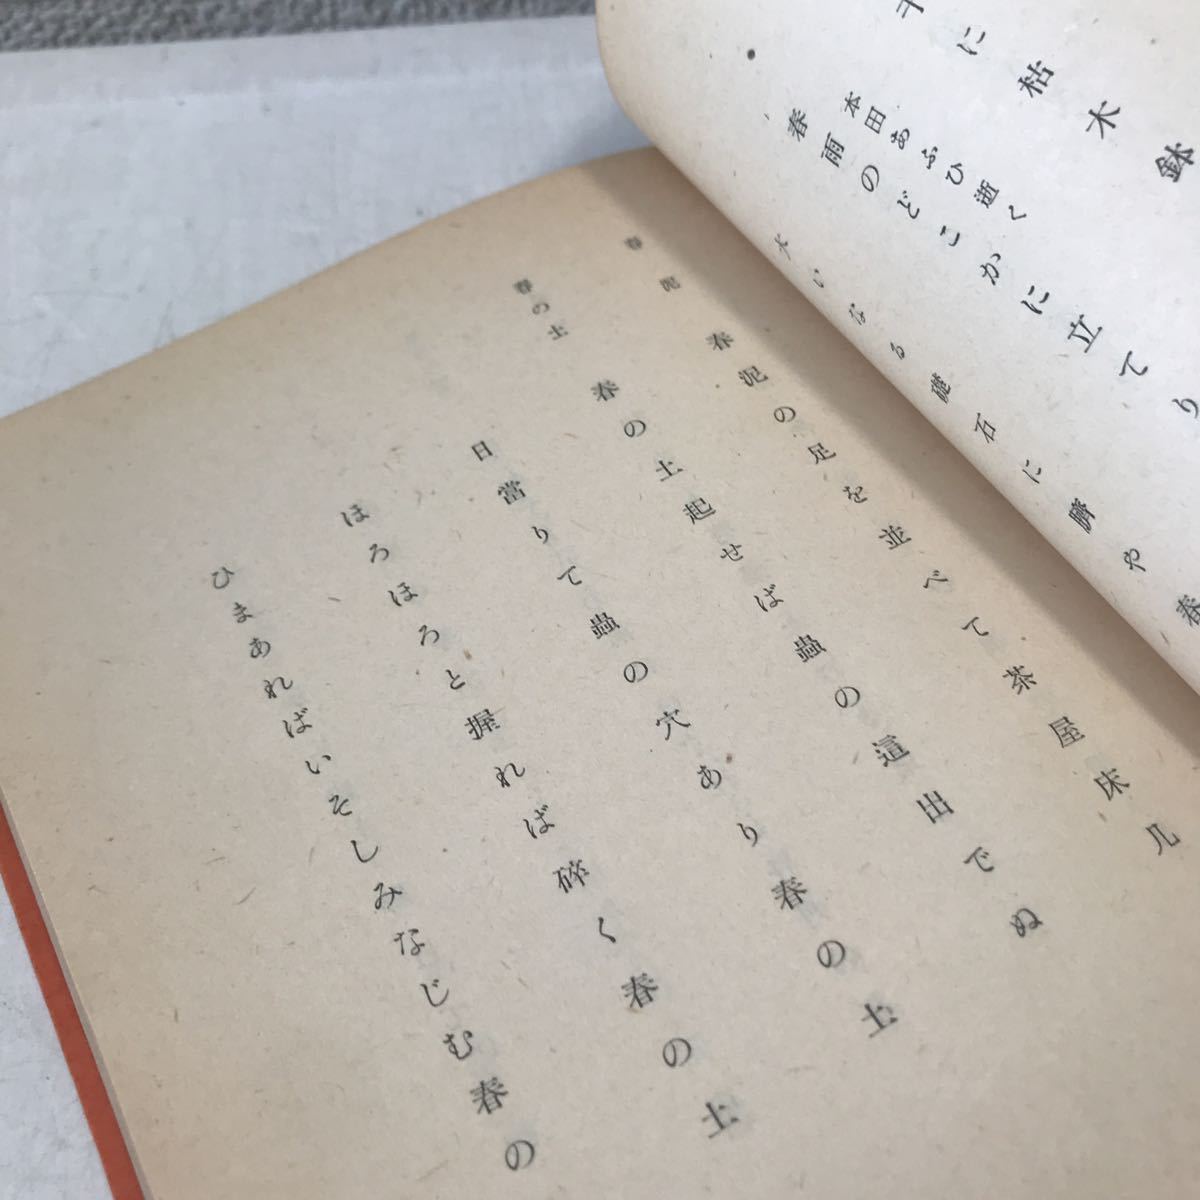 に枯木鉢
本田あふひ逝く
春雨のどこかに立てり
大いなる礎石に臍や春
春泥
春泥の足を並べて茶屋床几
春の土
春の土起せば蟲の這出でぬ
日當りて蟲の穴あり春の土
ほろほろと握れば碎く春の土
ひまあればいそしみなじむ春の